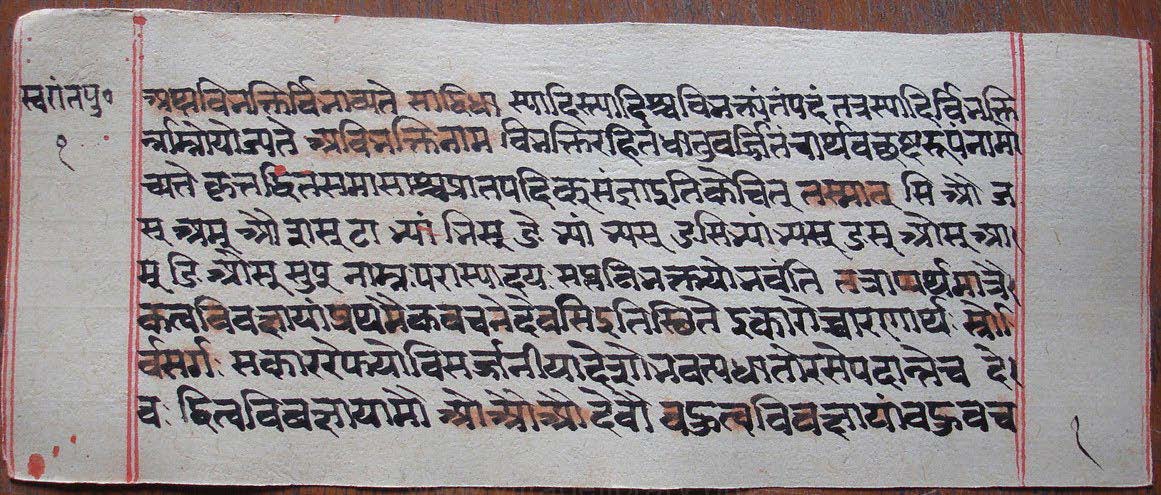 स्वरांतपु॰
१
अथ विभक्तिर्विभाव्यते सा द्विधा स्यादिस्त्यादिश्च विभक्त्यंतं पदं तत्र स्यादिर्विभक्ति
र्न्नाम्नो योज्यते अविभक्तिनाम विभक्तिरहितं धातुवर्ज्जितं चार्थवच्छब्दरूपं नामो
च्यते कृत्तद्धितसमासाश्च प्रातपदिकसंज्ञा इति केचित् तस्मात् सि औ ज
स् अम् औ शस् टा भ्यां भिस् ङे भ्यां भ्यस् ङसि भ्यां भ्यस् ङस् ओस् आ।
म् ङि ओस् सुप् नाम्नः परा स्यादयः सप्त विभक्तयो भवंति तत्राप्यर्थमात्रै।
कत्वविवक्षायां प्रथमैकवचने देव सि इति स्छिते इकारोच्चारणार्थः स्रोर्वि
र्वसर्गः सकाररेफयोविसर्ज्जनीयादेशो भवत्यधातोरसे पदान्ते च दे।
वः द्वित्वविवक्षायामौ ओऔऔ देवौ बहुत्वविवक्षायां बहुवच
१